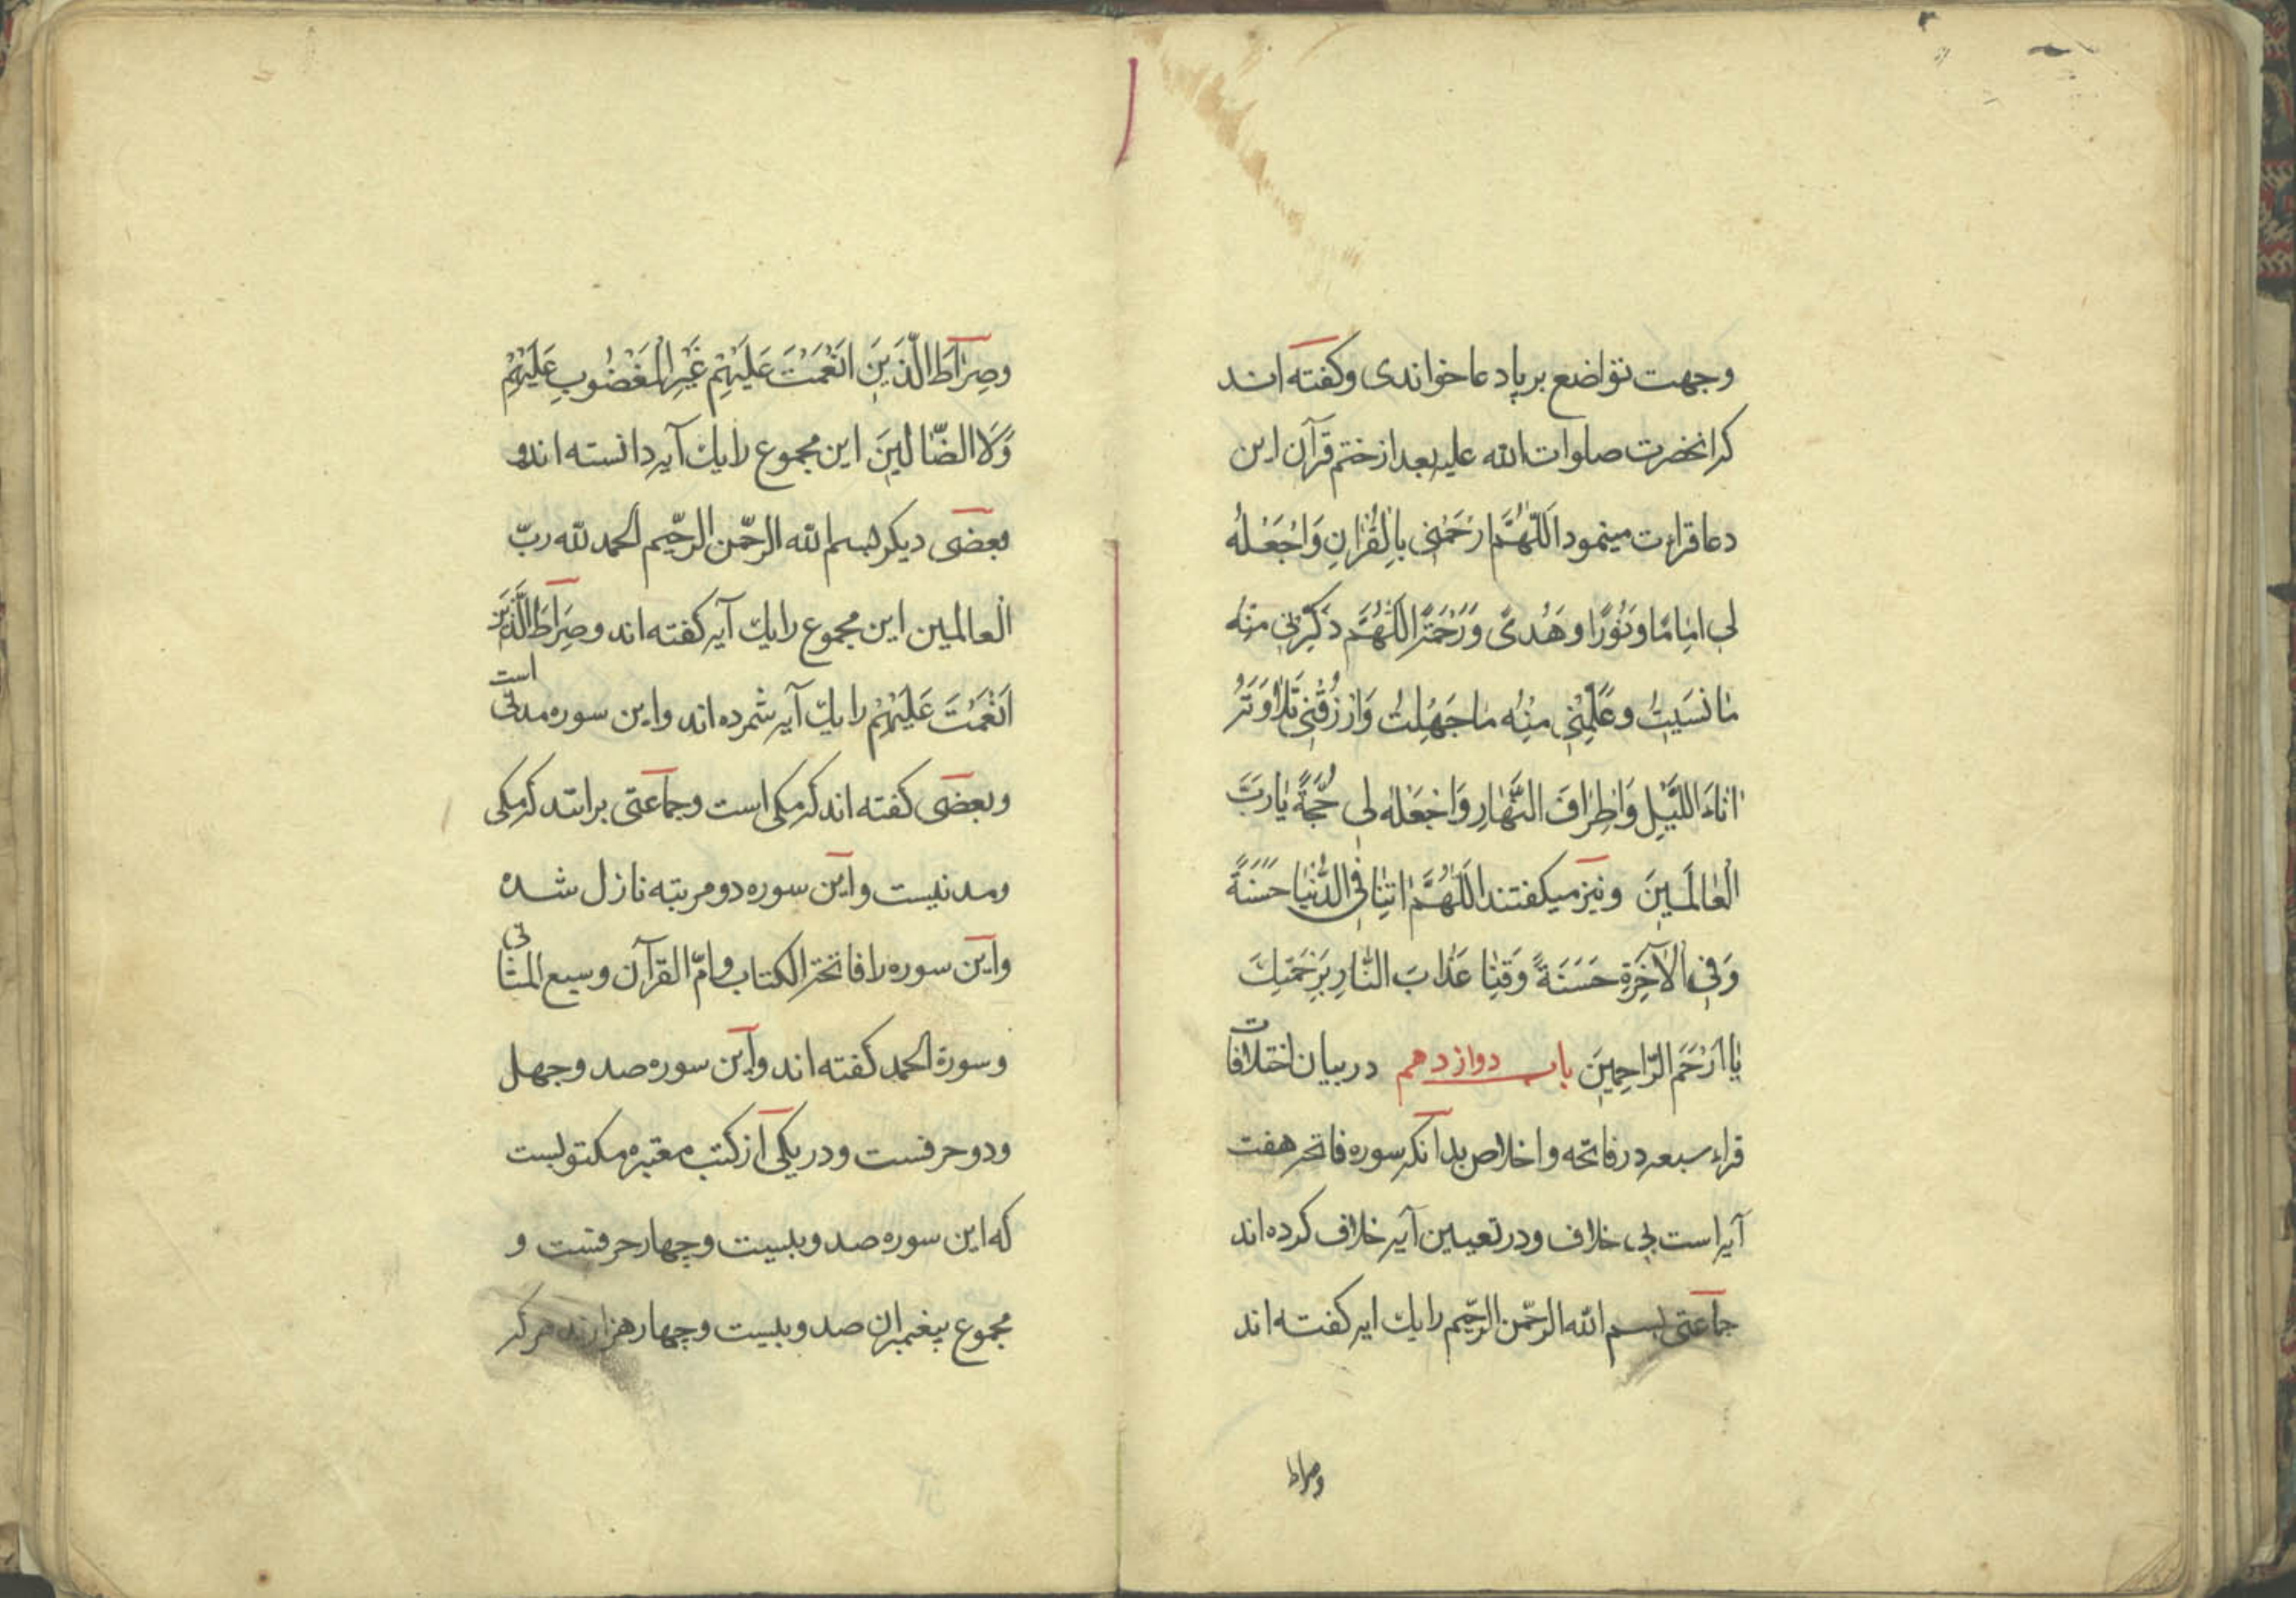 وجهت تواضع بر پا دعا خواندی وکفته اند
که انحضرت صلوات الله علیه بعد از ختم قرآن این
دعا قراءت مینمود اَللّهُمَّ ارْحَمْنی بِالْقُرْانِ وَاجْعَلْهُ
لی اِمامًا وَنُورًا وَهُدیً وَرَحْمَةً اَللّهُمَّ ذَکِّرْنی مِنْهُ
مانَسیتُ وعَلِّمْنی مِنْهُ ماجَهِلتُ وَارْزُقْنی تِلاوَتَهُ
اناءَ اللَّیْلِ وَاَطْرافَ النَّهارِ وَاجْعَلْهُ لی حُجَّةً یارَبَّ
الْعالَمینَ ونیز میکفتند اَللّهُمَّ اتِنا فِی الدُّنْیا حَسَنَةً
وَفِی الْآخِرَةِ حَسَنَةً وَقِنا عَذابَ النّارِ بِرَحْمَتِكَ
یا اَرْحَمَ الرّاحِمینَ باب دوازدهم در بیان اختلافات
قراء سبعه در فاتحه واخلاص بدانکه سوره فاتحه هفت
آیه است بی خلاف ودر تعیین آیه خلاف کرده اند
جماعتی بسم الله الرّحمن الرّحیم را یك ایه کفته اند
وصراط
وصِراطَ الَّذینَ اَنْعَمْتَ عَلَیْهِمْ غَیْرِ الْمَغْضُوبِ عَلَیْهِمْ
وَلَا الضّالّینَ این مجموع را یك آیه دانسته اند و
بعضی دیکر بسم الله الرّحمن الرّحیم الحمد لله ربّ
العالمین این مجموع را یك آیه کفته اند وصِراطَ الَّذینَ
اَنْعَمْتَ عَلَیْهِمْ را یك آیه شمرده اند واین سوره مدنی است
وبعضی کفته اند که مکی است وجماعتی برانند که مکی
ومدنیست واین سوره دو مرتبه نازل شده
واین سوره را فاتحة الکتاب وامّ القرآن وسبع المثانی
وسورة الحمد کفته اند واین سوره صد وچهل
ودو حرفست ودر یکی از کتب معتبره مکتوبست
که این سوره صد وبیست وچهار حرفست و
مجموع پیغمبران صد وبیست وچهار هزارند هر که